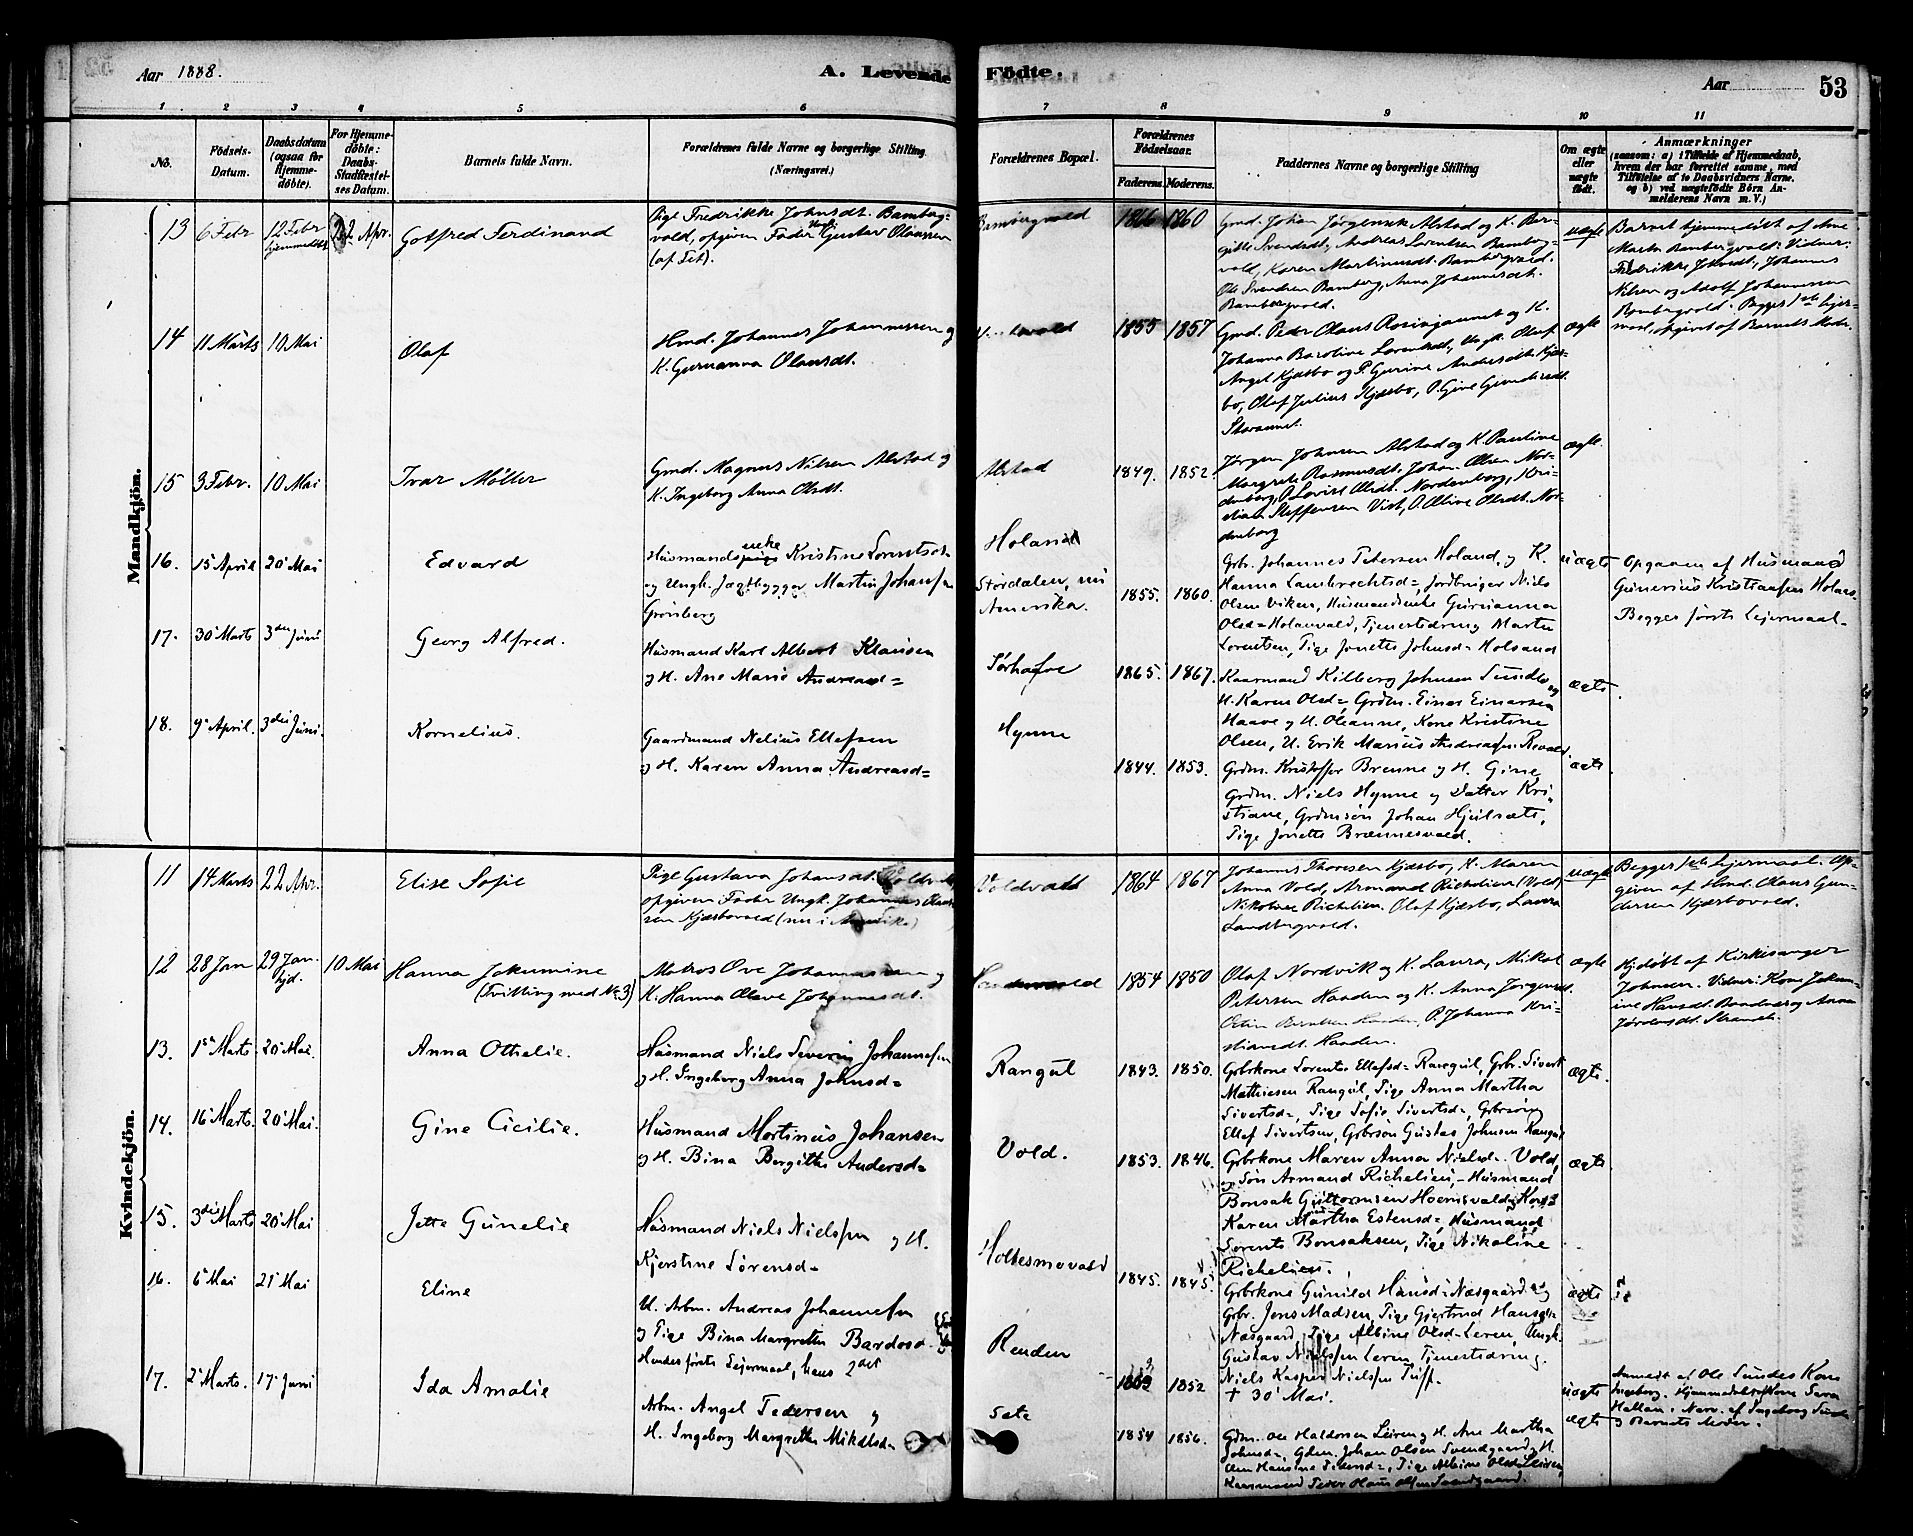 Aar 1888.
A. Levende Födte.
Aar
53
1 2 3 4 5 6 7 8 9 10 11
No.
Födsels-Datum.
Daabsdatum (ogsaa for Hjemme-döbte).
For Hjemme-döbte: Daabs-Stadfæstel-ses Datum.
Barnets fulde Navn.
Forældrenes fulde Navne og borgerlige Stilling (Næringsvei.)
Forældrenes Bopæl.
Forældrenes Födselsaar.
Faderens. Moderens.
Faddernes Navne og borgerlige Stilling
Om ægte eller uægte født.
Anmærkninger
(saasom: a) i Tilfælde af Hjemmedaab,
hvem der har forrettet samme, med
Tilføielse af to Daabsvidners Navne.
og b) ved uægtefödte Börn An-
melderens Navn m. V.)
Mandkjön.
13 6 Febr 12 Febr hjemmedøbt 22 Apr. Gotfred Ferdinand
Pige Fredrikke Johnsdt. Bamberg-
vald, opgiven Fader Ungk. Gustav Olaussen
(af Fet).
Bambergvald 1866 1860
Gmd. Johan Jørgensen Alstad og K. Ber-
gitte Svendsdt, Andreas Lorentsen Bamberg-
vald, Karen Martinusdt. Bambergvald.
Ole Svendsen Bamberg, Anna Johannesdt.
Bambergvald.
uægte
Barnet hjemmedøbt af Ane
Marta Bambergvald. Vidner:
Fredrikke Johnsdt, Johannes
Nilsen og Adolf Johannessen
Bambergvald. Begges 1ste Leier-
maal, opgivet af Barnets Moder.
14 11 Marts 10 Mai Olaf
Hmd. Johannes Johannessen og
K. Gurianna Olausdt.
1855 1857
Gmd. Peder Olaus Rosingaunet og K.
Johanna Baroline Lorentsdt, Ungk. Olaf
Angel Kjæsbo og P. Gurine Andersdt. Kjæs-
bo, Olaf Julius Kjæsbo, P. Gine Gundersdt.
Storaunet.
ægte
15 3 Febr. 10 Mai Ivar Möller
Gmd. Magnus Nilsen Alstad og
K. Ingeborg Anna Olsdt.
Alstad 1849. 1852.
Jørgen Johnsen Alstad og K. Pauline
Margrete Rasmusdt. Johan Olsen Nor-
denborg, P. Lovise Olsdt. Nordenborg, Kri-
stian Steffensen Vist, P. Oline Olsdt. Nor-
denborg
ægte.
16. 15 April 20 Mai Edvard
Husmandsenke Kristine Lorentsdt
og Ungk. Jægtbygger Martin Johansen
Grönberg
Holand
Størdalen, nu
Amerika.
1855. 1860.
Grbr. Johannes Petersen Holand, og K.
Hanna Lambrechtsd=, Jordbruger Niels
Olsen Viken, Husmandsenke Gurianna
Olsd= Holanvald, Tjenestedreng Martin
Lorentsen, Pige Jonette Johnsd= Holsand
uægte
Opgaaen af Husmand
Gunerius Kristiansen Holan.
Begges første Lejermaal.
17. 30 Marts 3die Juni Georg Alfred.
Husmand Karl Albert Klausen
og H. Ane Marie Andreasd=
Sørhafve 1865. 1867.
Kaarmand Kilberg Johnsen Sundby og
H. Karen Olsd=, Grdm. Einar Einarsen
Haave og H. Oleanne, Kone Kristine
Olsen, U. Erik Marius Andreasen
ægte.
18. 9 April. 3die Juni. Kornelius.
Gaardmand Nelius Ellefsen
og H. Karen Anna Andreasd=
Hynne 1844. 1853.
Grdm. Kristoffer Brenne og H. Gine,
Grdm. Niels Hynne og Datter Kri-
stiane, Grdmsön Johan Hjulsæte,
Pige Jonette Brennesvald.
ægte
Kvindekjön.
11 14 Marts 22 Apr. Elise Sofie
Pige Gustava Johansdt. Voldvald,
opgiven Fader Ungk. Johannes Olaus-
sen Kjæsbovald (nu i Amerika)
Voldvald 1864 1867
Johannes Thoresen Kjæsbo, K. Maren
Anna Vold, Armand Richelieu (Vold)
Nikoline Richelieu. Olaf Kjæsbo, Laura
Landbergvald.
uægte
Begges 1ste Leiermaal. Op-
given af Hmd. Olaus Gun-
dersen Kjæsbovald.
12 28 Jan 29 Jan. hjd. 10 Mai Hanna Jokumine
(Tvilling med No. 3)
Matros Ove Johannessen og
K. Hanna Olave Johannesdt.
1854 1850
Olaf Nordvik og K. Laura, Mikal
Petersen Haaden og K. Anna Jørgensdt.
Haaden, P. Johanna Kri-
stiansdt. Haaden.
ægte
Hjdøbt af Kirkesanger
Johnsen. Vidner: Kone Jokum-
ine Hansdt. og Anna
Jørdensdt. Strande.
13. 1ste Marts. 20 Mai. Anna Othelie.
Husmand Niels Severin Johannesen
og H. Ingeborg Anna Johnsd=
Rangul 1843. 1850.
Grbrkone Lorentse Ellefsd= Rangul, Grbr. Sivert
Mathiesen Rangul, Pige Anna Martha
Sivertsd=, Pige Sofie Sivertsd=, Grbrsön
Ellef Sivertsen, Grbrsön Gustav Johnsen Rangul
ægte.
14. 16 Marts. 20 Mai. Gine Cicilie.
Husmand Martinus Johansen
og H. Bina Bergitte Andersd=
Vold. 1853. 1846.
Grbrkone Maren Anna Nielsd= Vold,
og Sön Armand Richelieu, Husmand
Bonsak Guttormsen Hoemsvald, Kone
Karen Martha Estensd=, Husmand
Lorents Bonsaksen, Pige Nikoline
Richelieu.
ægte
15. 3die Marts 20 Mai Jette Gunelie
Husmand Niels Nielsen og H.
Kjerstine Sörensd=
Holtesmovald 1845. 1845.
Grbrkone Gunild Hansd= Næsgaard og
Grbr. Jens Madsen, Pige Gjertrud Hansd=
Næsgaard, Pige Albine Olsd= Leren, Ungk.
Gustav Nielsen Leren, Tjenestedreng
Niels Kasper Nielsen
† 30 Mai.
ægte
16. 6 Mai 21 Mai Eline
U. Arbm. Andreas Johannesen
og Pige Bina Margrethe Bardosd.
Hendes første Lejermaal, hans 2det
Renden 1852
uægte
17. 2 Marts. 17 Juni Ida Amalie
Arbm. Angel Pedersen og
H. Ingeborg Margrethe Mikalsd=
Sæte 1854 1856.
Gdm. Ole Haldorsen Leiren og H. Ane Martha
Johnsd=, Gdm. Johan Olsen Svendgaard og H.
Pige Albine Olsd= Leiren,
ægte
Anmeldt af Ole Sundes Kone
Ingeborg. Hjemmedøbt af Kone Sara
Hallan. Nærv. af Ingeborg Sunde
og Barnets Moder.